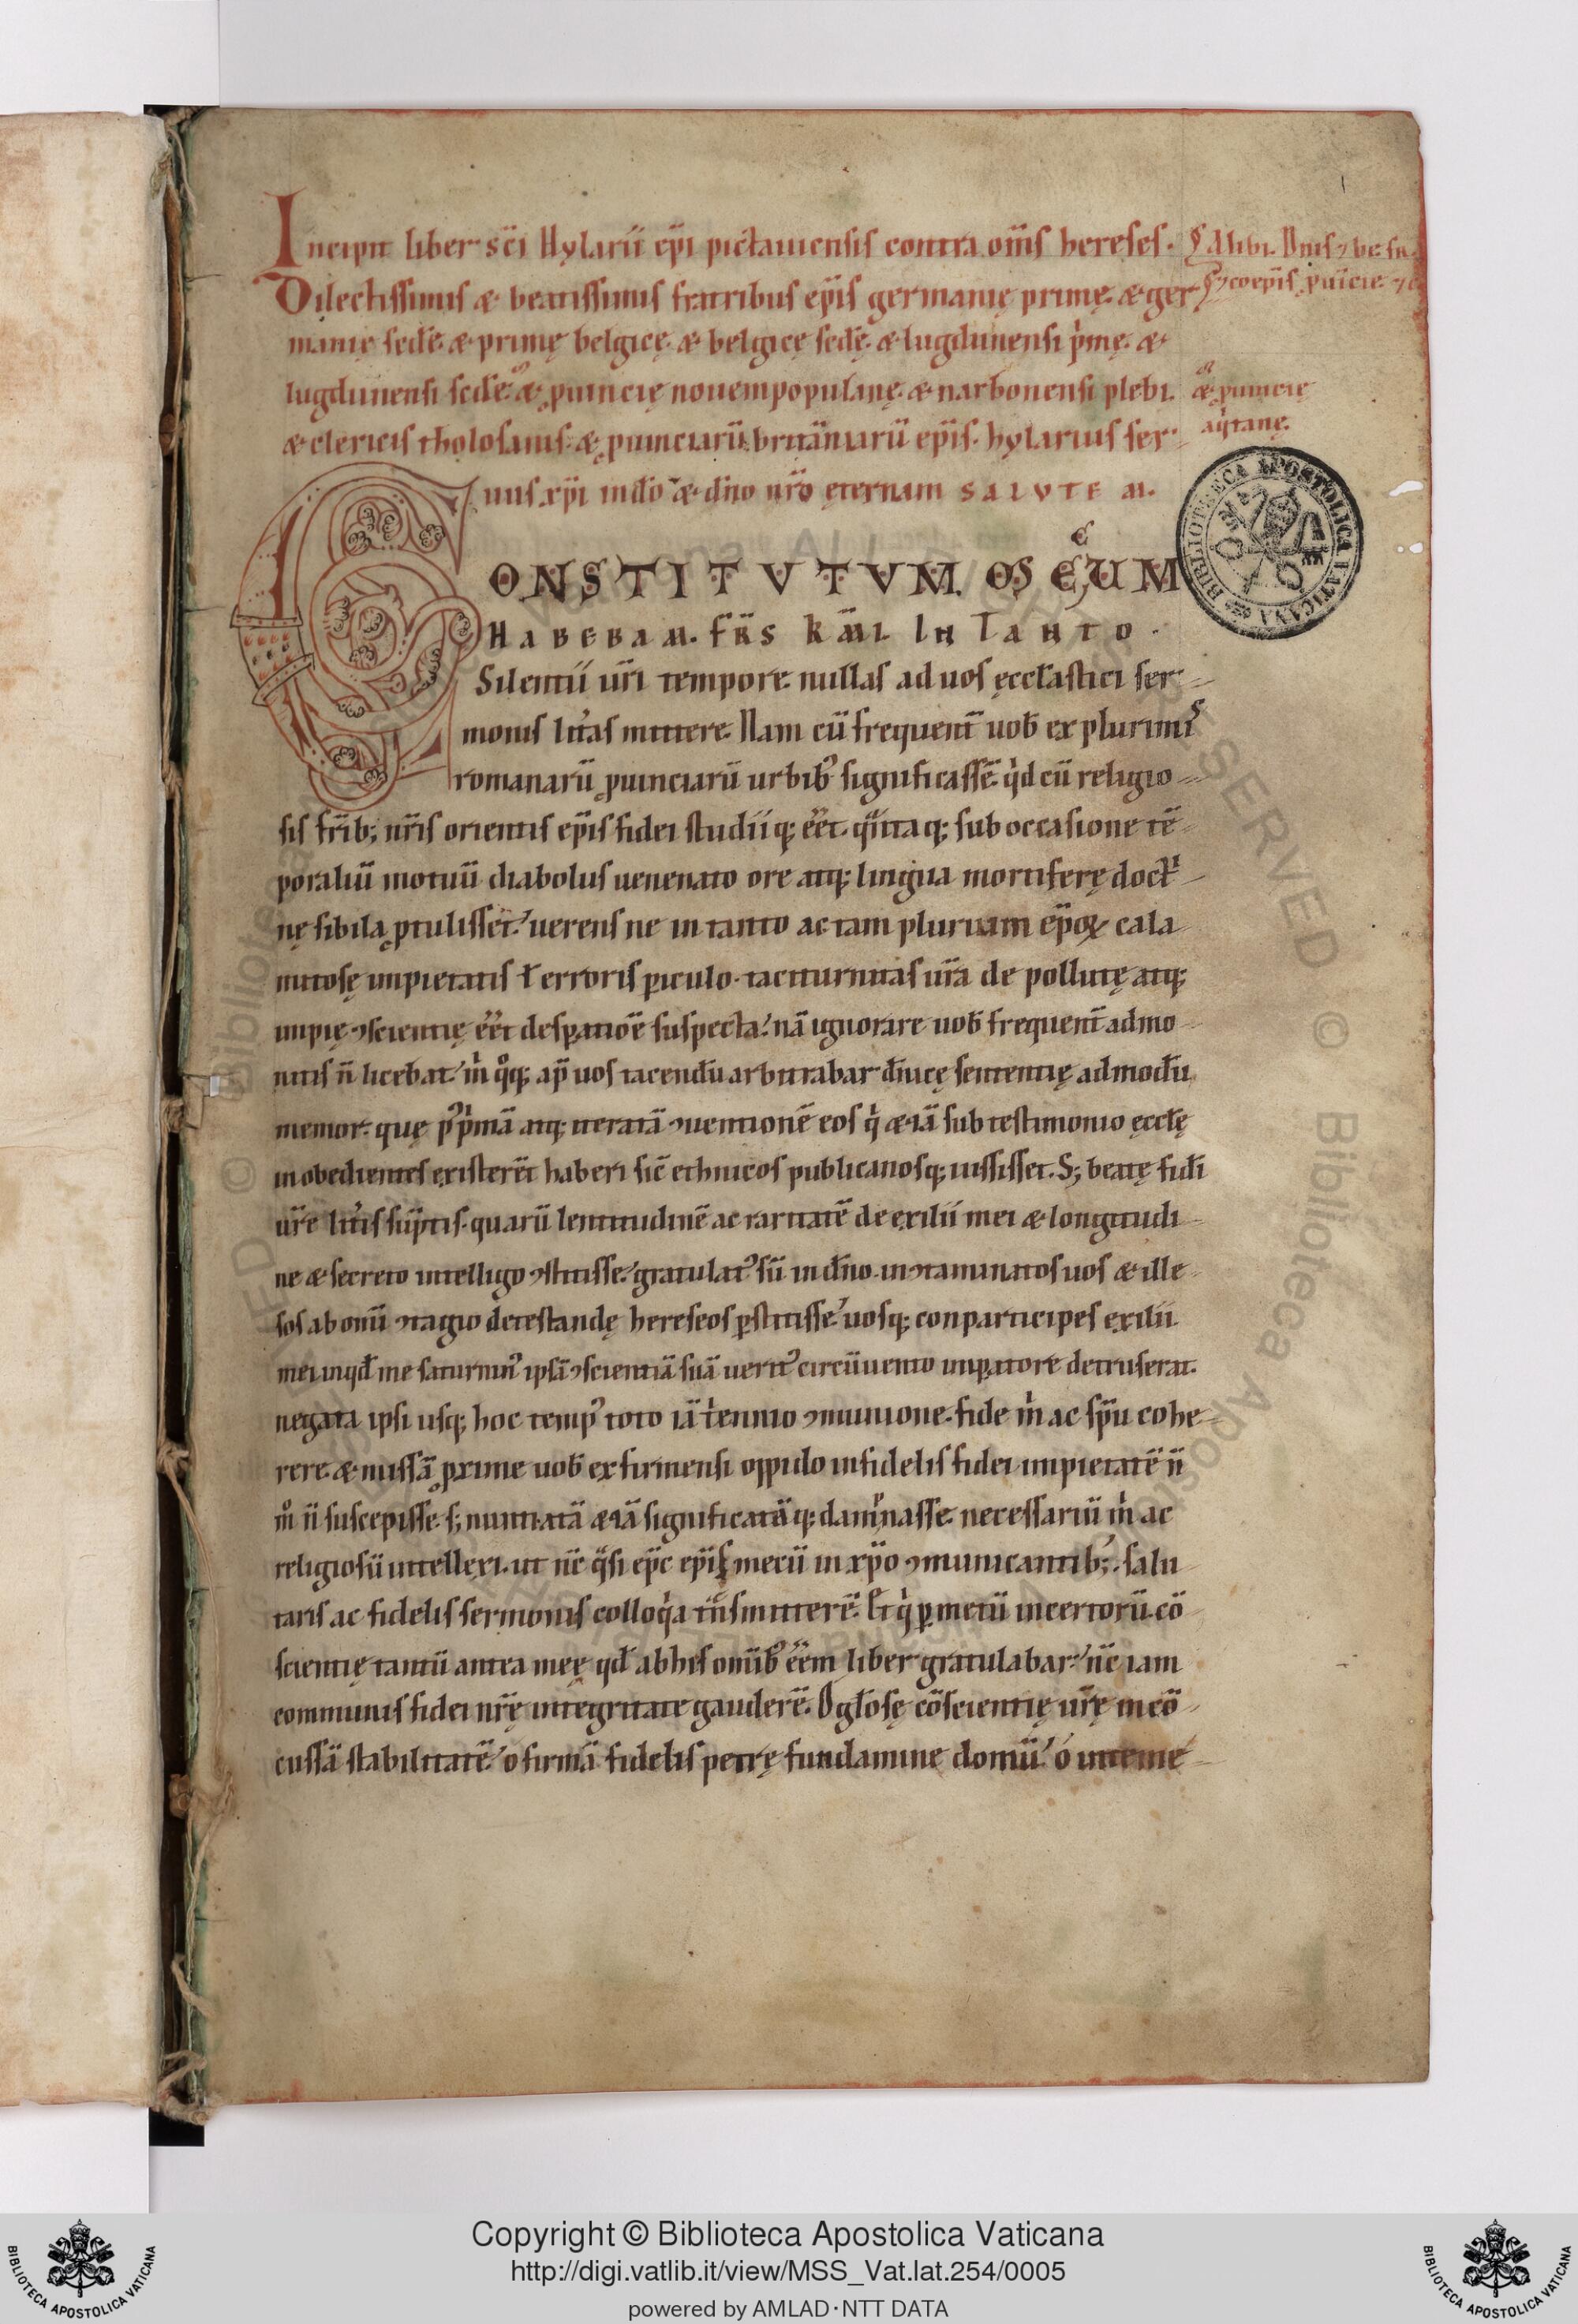 Incipit liber sc̄i Hylarii ep̄i pictauiensis contra om̄s hereses.
Dilectissimis & beatissimis fratribus ep̄is germanię primę. & ger
manię sedę. & primę belgicę. & belgicę sedę. & lugdunensi p'mę. &
lugdunensi sedę. & ꝓuincię nouempopulanę. & narbonensi plebi.
& ꝓuincię
aq'tanę.
& clericis tholosanis. & ꝓuinciarū britāniarū ep̄is. hylarius ser
uus xp̄i in dō & dn̄o nr̄o ęternam SALUTEM.
CONSTITVTVM
HABEBAM. FR̄S KM̄I IN TANTO
Silentii ur̄i tempore nullas ad uos ęccl̄astici ser
monis lit̄as mittere. Nam cū frequent̄ uob̄ ex plurimis
romanarū ꝓuinciarū urbib; significassē q'd cū religio
sis fr̄ib; nr̄is orientis ep̄is fidei studiiq; ēēt. q̄ntaq; sub occasione tē
poraliū motuū diabolus uenenato ore atq; lingua mortiferę doct'
nę sibila ꝓtulisset. uerens ne in tanto ac tam plurium ep̄oꝝ cala
mitosę impietatis ł erroris ꝑiculo. taciturnitas ur̄a de pollutę atq;
impię ꝯscientię ēēt desꝑatiōe suspecta. nā ignorare uob̄ frequent̄ admo
nitis n̄ licebat. m' q°q; ap̄ uos tacendū arbitrabar diuicę sententię admodū
memor. quę p' p'mā atq; iteratā ꝯuentionē eos q' &iā sub testimonio ęccl̄ę
inobedientes existerēt haberi sic̄ ethnicos publicanosq; iussisset. S; beatę fidi
ur̄ę lit̄is sūptis. quarū lentitudinē ac raritatē de exilii mei & longitudi
ne & secreto intelligo ꝯstitisse. gratulat' sū in dn̄o. inꝯtaminatos uos & ille
sos ab omī ꝯtagio detestandę hereseos ꝑstitisse. uosq; conparticipes exilii
mei in qd̄ me saturnin' ipsā ꝯscientiā suā uerit' circūuento imꝑatore detruserat.
negata ipsi usq; hoc temp' toto iā t'ennio ꝯmunione. fide m' ac sp̄u cohe
rere. & missā ꝓxime uob̄ ex firmensi oppido infidelis fidei impietatē n̄
m° n̄ suscepisse. s; nuntiatā &iā significatāq; dampnasse. necessariū m' ac
religiosū intellexi. ut nc̄ q̄si ep̄c ep̄is mecū in xp̄o ꝯmunicantib;. salu
taris ac fidelis sermonis colloq'a tn̄smitterē. Et q' ꝑ metū incertorū cō
scientię tantū antea meę qd̄ ab his omib; ēēm liber gratulabar. nc̄ iam
communis fidei nr̄ę integritate gauderē. O gl̄osę cōscientię ur̄ę in cō
cussā stabilitatē. o firmā fidelis petrę fundamine domū. ó inteme
BIBLIOTECA APOSTOLICA VATICANA
Copyright © Biblioteca Apostolica Vaticana
http://digi.vatlib.it/view/MSS_Vat.lat.254/0005
powered by AMLAD·NTT DATA
BIBLIOTECA APOSTOLICA VATICANA
BIBLIOTECA APOSTOLICA VATICANA